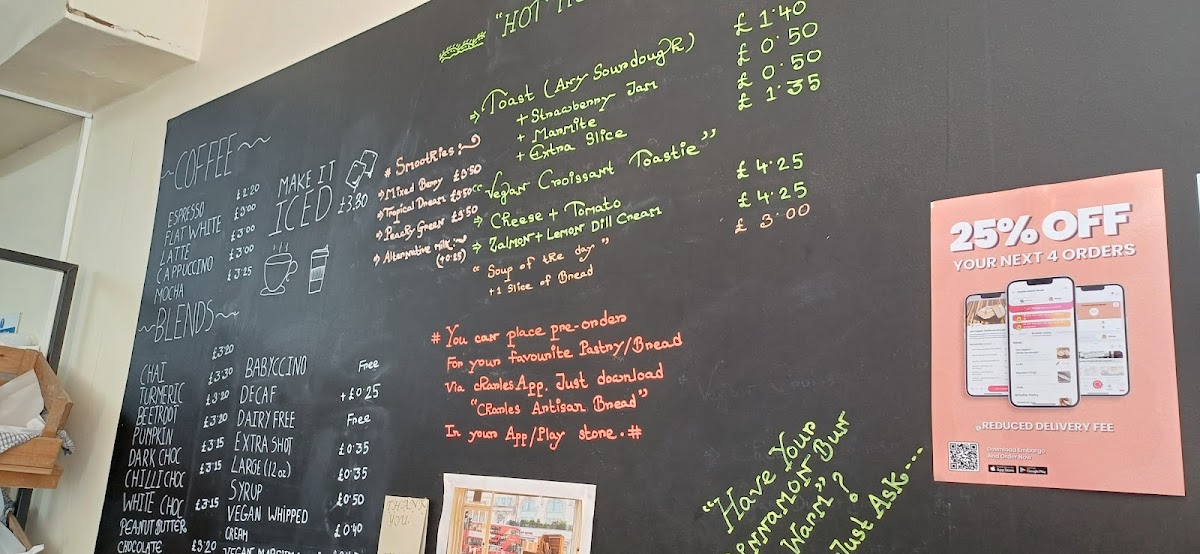 COFFEE
ESPRESSO £2.20
FLAT WHITE £3.00
LATTE £3.00
CAPPUCCINO £3.00
MOCHA £3.25
MAKE IT
ICED £3.30
~BLENDS~
CHAI £3.20
TURMERIC £3.30
BEETROOT £3.20
PUMPKIN £3.20
DARK CHOC £3.15
CHILLI CHOC £3.15
WHITE CHOC
PEANUT BUTTER £3.15
CHOCOLATE
£3.20
BABYCCINO Free
DECAF +£0.25
DAIRY FREE Free
EXTRA SHOT £0.35
LARGE (12oz) £0.35
SYRUP £0.50
VEGAN WHIPPED
CREAM £0.40
# Smoothies:
⇒ Mixed Berry £3.50
⇒ Tropical Dream £3.50
⇒ Peachy Green £3.50
⇒ Alternative milk
(+0.25)
"HOT
⇒ Toast (Any Sourdough) £1.40
+ Strawberry Jam £0.50
+ Marmite £0.50
+ Extra Slice £1.35
"Vegan Croissant Toastie"
⇒ Cheese + Tomato £4.25
⇒ Zalmon + Lemon Dill Cream £4.25
"Soup of the day" £3.00
+1 Slice of Bread
# You can place pre-orders
For your favourite Pastry/Bread
Via cRanles App. Just download
"CRanles Artisan Bread"
In your App/Play store. #
THANK
YOU
"Have Your
Warm"?
Just Ask...
25% OFF
YOUR NEXT 4 ORDERS
REDUCED DELIVERY FEE
Download Embargo
And Order Now
App Store
Google Play